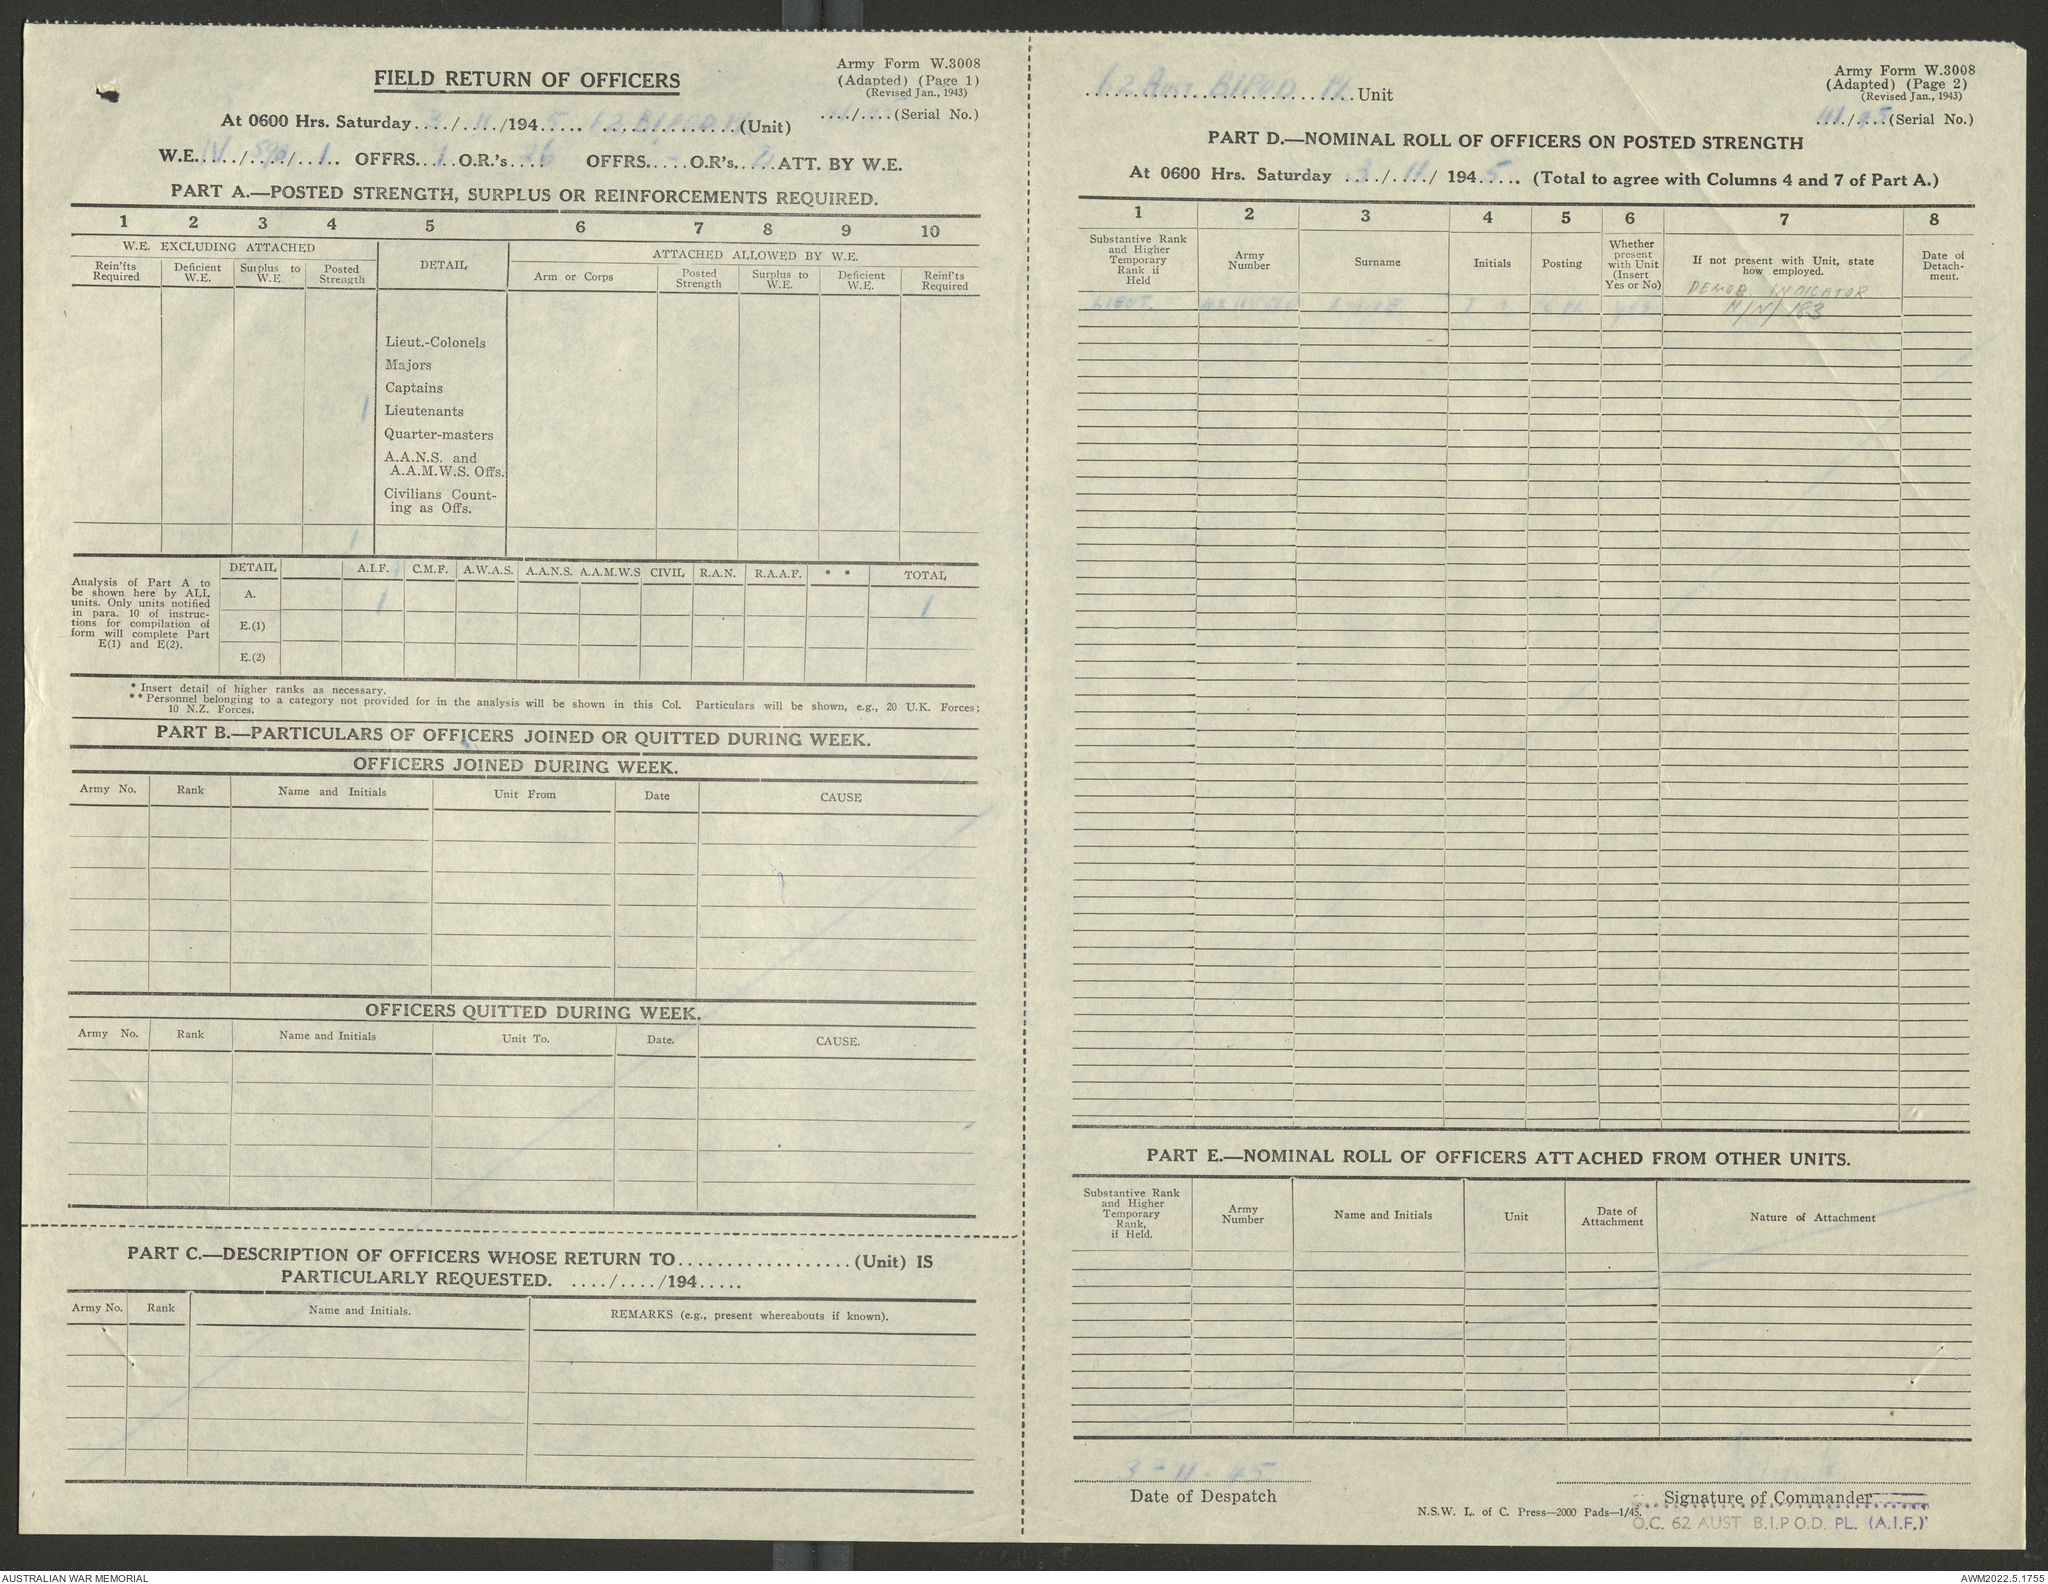 FIELD RETURN OF OFFICERS
Army Form W.3008
(Adapted) (Page 1)
(Revised Jan., 1943)
..../.....(Serial No.)
At 0600 Hrs. Saturday 3/11/1945 62 B.I.P.O.D. Pl (Unit)
W.E. IV/590/1 OFFRS. 1 O.R.'s 26 OFFRS. - O.R.'s ATT. BY W.E.
PART A.—POSTED STRENGTH, SURPLUS OR REINFORCEMENTS REQUIRED.
1 2 3 4 5 6 7 8 9 10
W.E. EXCLUDING ATTACHED
DETAIL
ATTACHED ALLOWED BY W.E.
Rein'fts Required
Deficient W.E.
Surplus to W.E.
Posted Strength
Arm or Corps
Posted Strength
Surplus to W.E.
Deficient W.E.
Reinf'ts Required
Lieut.-Colonels
Majors
Captains
1 Lieutenants
Quarter-masters
A.A.N.S. and
A.A.M.W.S. Offs.
Civilians Count-
ing as Offs.
1
Analysis of Part A to
be shown here by ALL
units. Only units notified
in para. 10 of instruc-
tions for compilation of
form will complete Part
E(1) and E(2).
DETAIL A.I.F. C.M.F. A.W.A.S. A.A.N.S. A.A.M.W.S CIVIL R.A.N. R.A.A.F. * * TOTAL
A. 1 1
E.(1)
E.(2)
* Insert detail of higher ranks as necessary.
** Personnel belonging to a category not provided for in the analysis will be shown in this Col. Particulars will be shown, e.g., 20 U.K. Forces;
10 N.Z. Forces.
PART B.—PARTICULARS OF OFFICERS JOINED OR QUITTED DURING WEEK.
OFFICERS JOINED DURING WEEK.
Army No. Rank Name and Initials Unit From Date CAUSE
OFFICERS QUITTED DURING WEEK.
Army No. Rank Name and Initials Unit To. Date. CAUSE.
PART C.—DESCRIPTION OF OFFICERS WHOSE RETURN TO..................(Unit) IS
PARTICULARLY REQUESTED. ..../..../194.....
Army No. Rank Name and Initials. REMARKS (e.g., present whereabouts if known).
62 Aust B.I.P.O.D. Pl. Unit
Army Form W.3008
(Adapted) (Page 2)
(Revised Jan., 1943)
111/45 (Serial No.)
PART D.—NOMINAL ROLL OF OFFICERS ON POSTED STRENGTH
At 0600 Hrs. Saturday 3/11/1945 (Total to agree with Columns 4 and 7 of Part A.)
1 2 3 4 5 6 7 8
Substantive Rank
and Higher
Temporary
Rank if
Held
Army
Number
Surname
Initials
Posting
Whether
present
with Unit
(Insert
Yes or No)
If not present with Unit, state
how employed.
Date of
Detach-
ment.
DEMOB. INDICATOR
N/N/183
LIEUT. yes
PART E.—NOMINAL ROLL OF OFFICERS ATTACHED FROM OTHER UNITS.
Substantive Rank
and Higher
Temporary
Rank,
if Held.
Army
Number
Name and Initials
Unit
Date of
Attachment
Nature of Attachment
3-11-45
Date of Despatch
Signature of Commander
N.S.W. L. of C. Press—2000 Pads—1/45.
O.C. 62 AUST B.I.P.O.D. PL. (A.I.F.)
AUSTRALIAN WAR MEMORIAL
AWM2022.5.1755